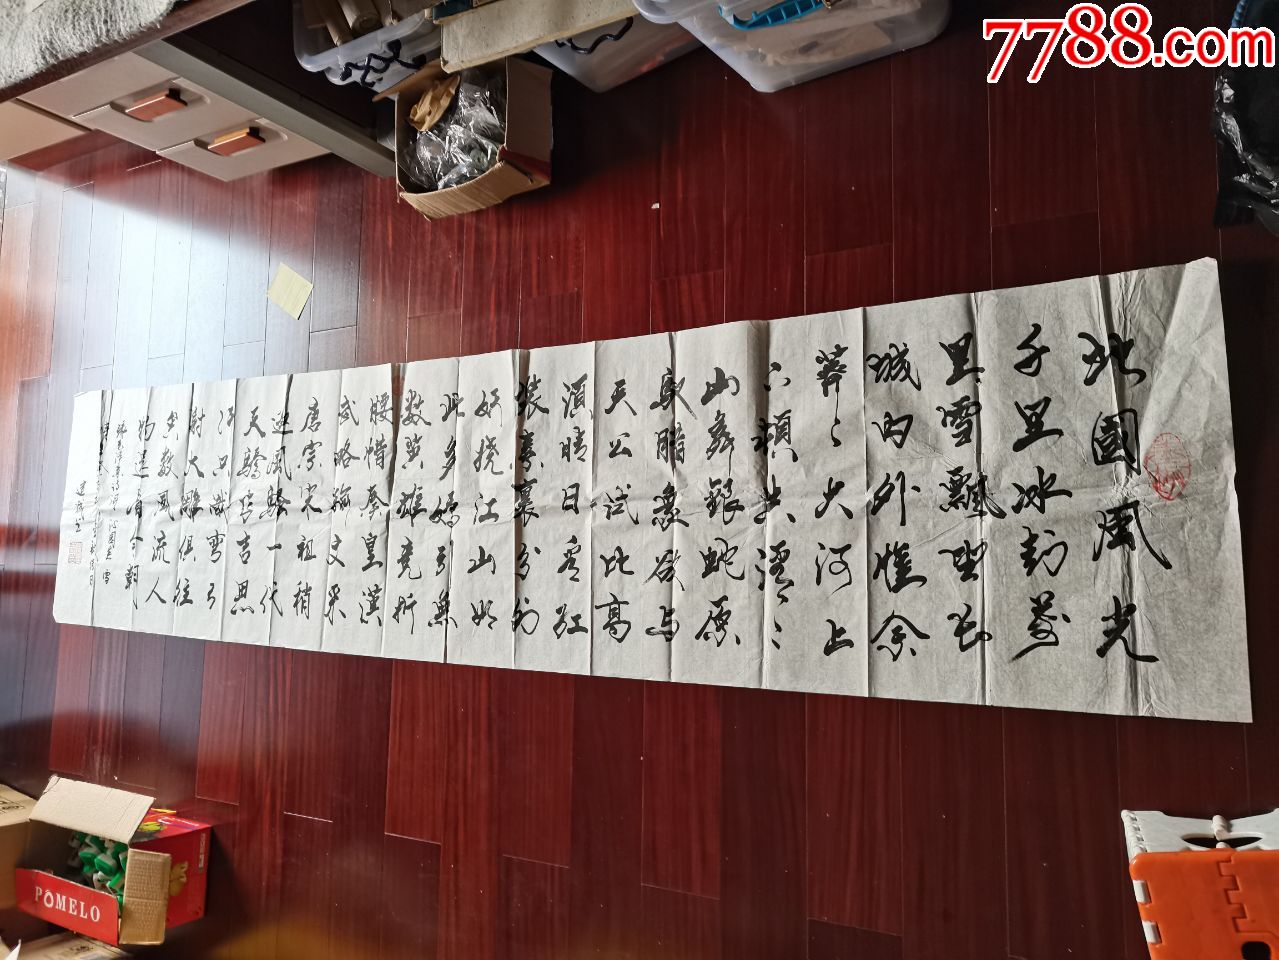 7788.com
北國風光
千里冰封萬
里雪飄望长
城内外惟余
莽〻大河上
下頓失滔〻
山舞銀蛇原
馳腊象欲与
天公試比高
須晴日看红
装素裹分外
妖娆江山如
此多嬌引無
数英雄竞折
腰惜秦皇漢
武略输文采
唐宗宋祖稍
遜風騷一代
天驕成吉思
汗只識彎弓
射大雕俱往
矣数風流人
物還看今朝
沁園春雪
POMELO